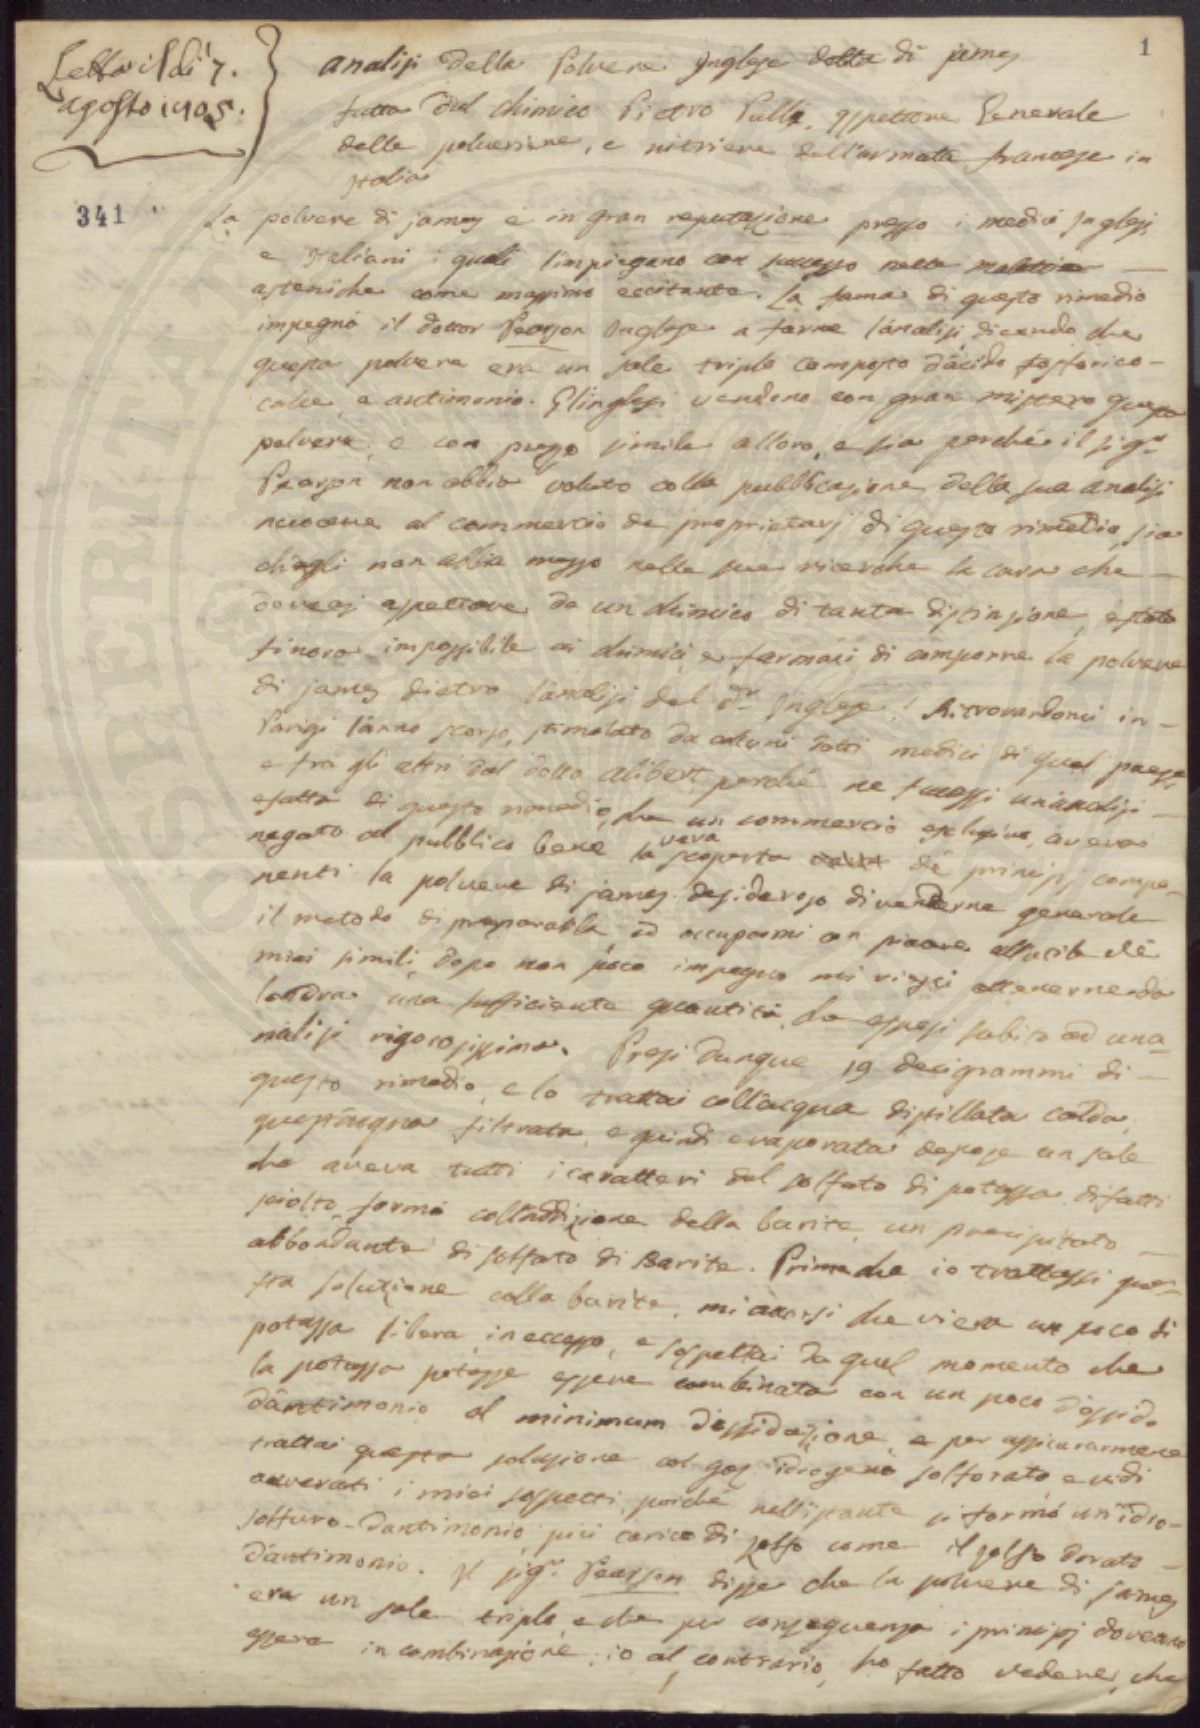 Letta il dì 7.
agosto 1805.
1
341
Analisi della Polvere Inglese detta di james
fatta dal chimico Pietro Pulli, ispettore Generale
delle polveriere, e nitriere dell'armata francese in
Italia
La polvere di james è in gran reputazione presso i medici Inglesi,
e Italiani i quali l'impiegano con successo nelle malattie
asteniche come massimo eccitante. La fama di questo rimedio
impegnò il dottor Pearson Inglese a farne l'analisi dicendo che
questa polvere era un sale triplo composto d'acido fosforico-
calce, e antimonio. Gl'inglesi vendono con gran mistero questa
polvere, e con prezzo simile all'oro, e sia perché il sigr
Pearson non abbia voluto colla pubblicazione della sua analisi
nuocere al commercio de proprietarj di questo rimedio, sia
ch'egli non abbia messo nelle sue ricerche la cura che
doveasi aspettare da un chimico di tanta distinzione, è stato
finora impossibile ai chimici e farmaci di comporre la polvere
di james dietro l'analisi del dr Inglese. Ritrovandomi in
Parigi l'anno scorso, stimolato da alcuni dotti medici di quel paese
e fra gli altri dal dotto Alibert, perché ne facessi un'analisi
esatta di questo rimedio, che un commercio esclusivo, aveva
negato al pubblico bene la vera scoperta de' principj compo-
nenti la polvere di james. desideroso di renderne generale
il metodo di prepararla, ed occuparmi con piacere all'utile de'
miei simili, dopo non poco impegno mi riescì ottenerne da
londra una sufficiente quantità, la esposi subito ad una a-
nalisi rigorosissima. Presi dunque 19 decigrammi di
questo rimedio, e lo trattai coll'acqua distillata calda,
quest'acqua filtrata, e quindi evaporata depose un sale
che aveva tutti i caratteri del solfato di potassa. difatti
sciolto formò coll'addizione della barite, un precipitato
abbondante di solfato di Barite. Prima che io trattassi que-
sta soluzione colla barite, mi accorsi che vi era un poco di
potassa libera, in eccesso, e sospettai da quel momento che
la potassa potesse essere combinata con un poco d'ossido
d'antimonio al minimum d'ossidazione, e per assicurarmene
trattai questa soluzione col gas idrogeno solforato e vidi
avverati i miei sospetti, poiché nell'istante si formò un'idro-
solfuro-d'antimonio, più carico di zolfo come il zolfo dorato
d'antimonio. Il sigr. Pearson disse che la polvere di james
era un sale triplo, e che per conseguenza i principj doveano
essere in combinazione; io al contrario, ho fatto vedere, che